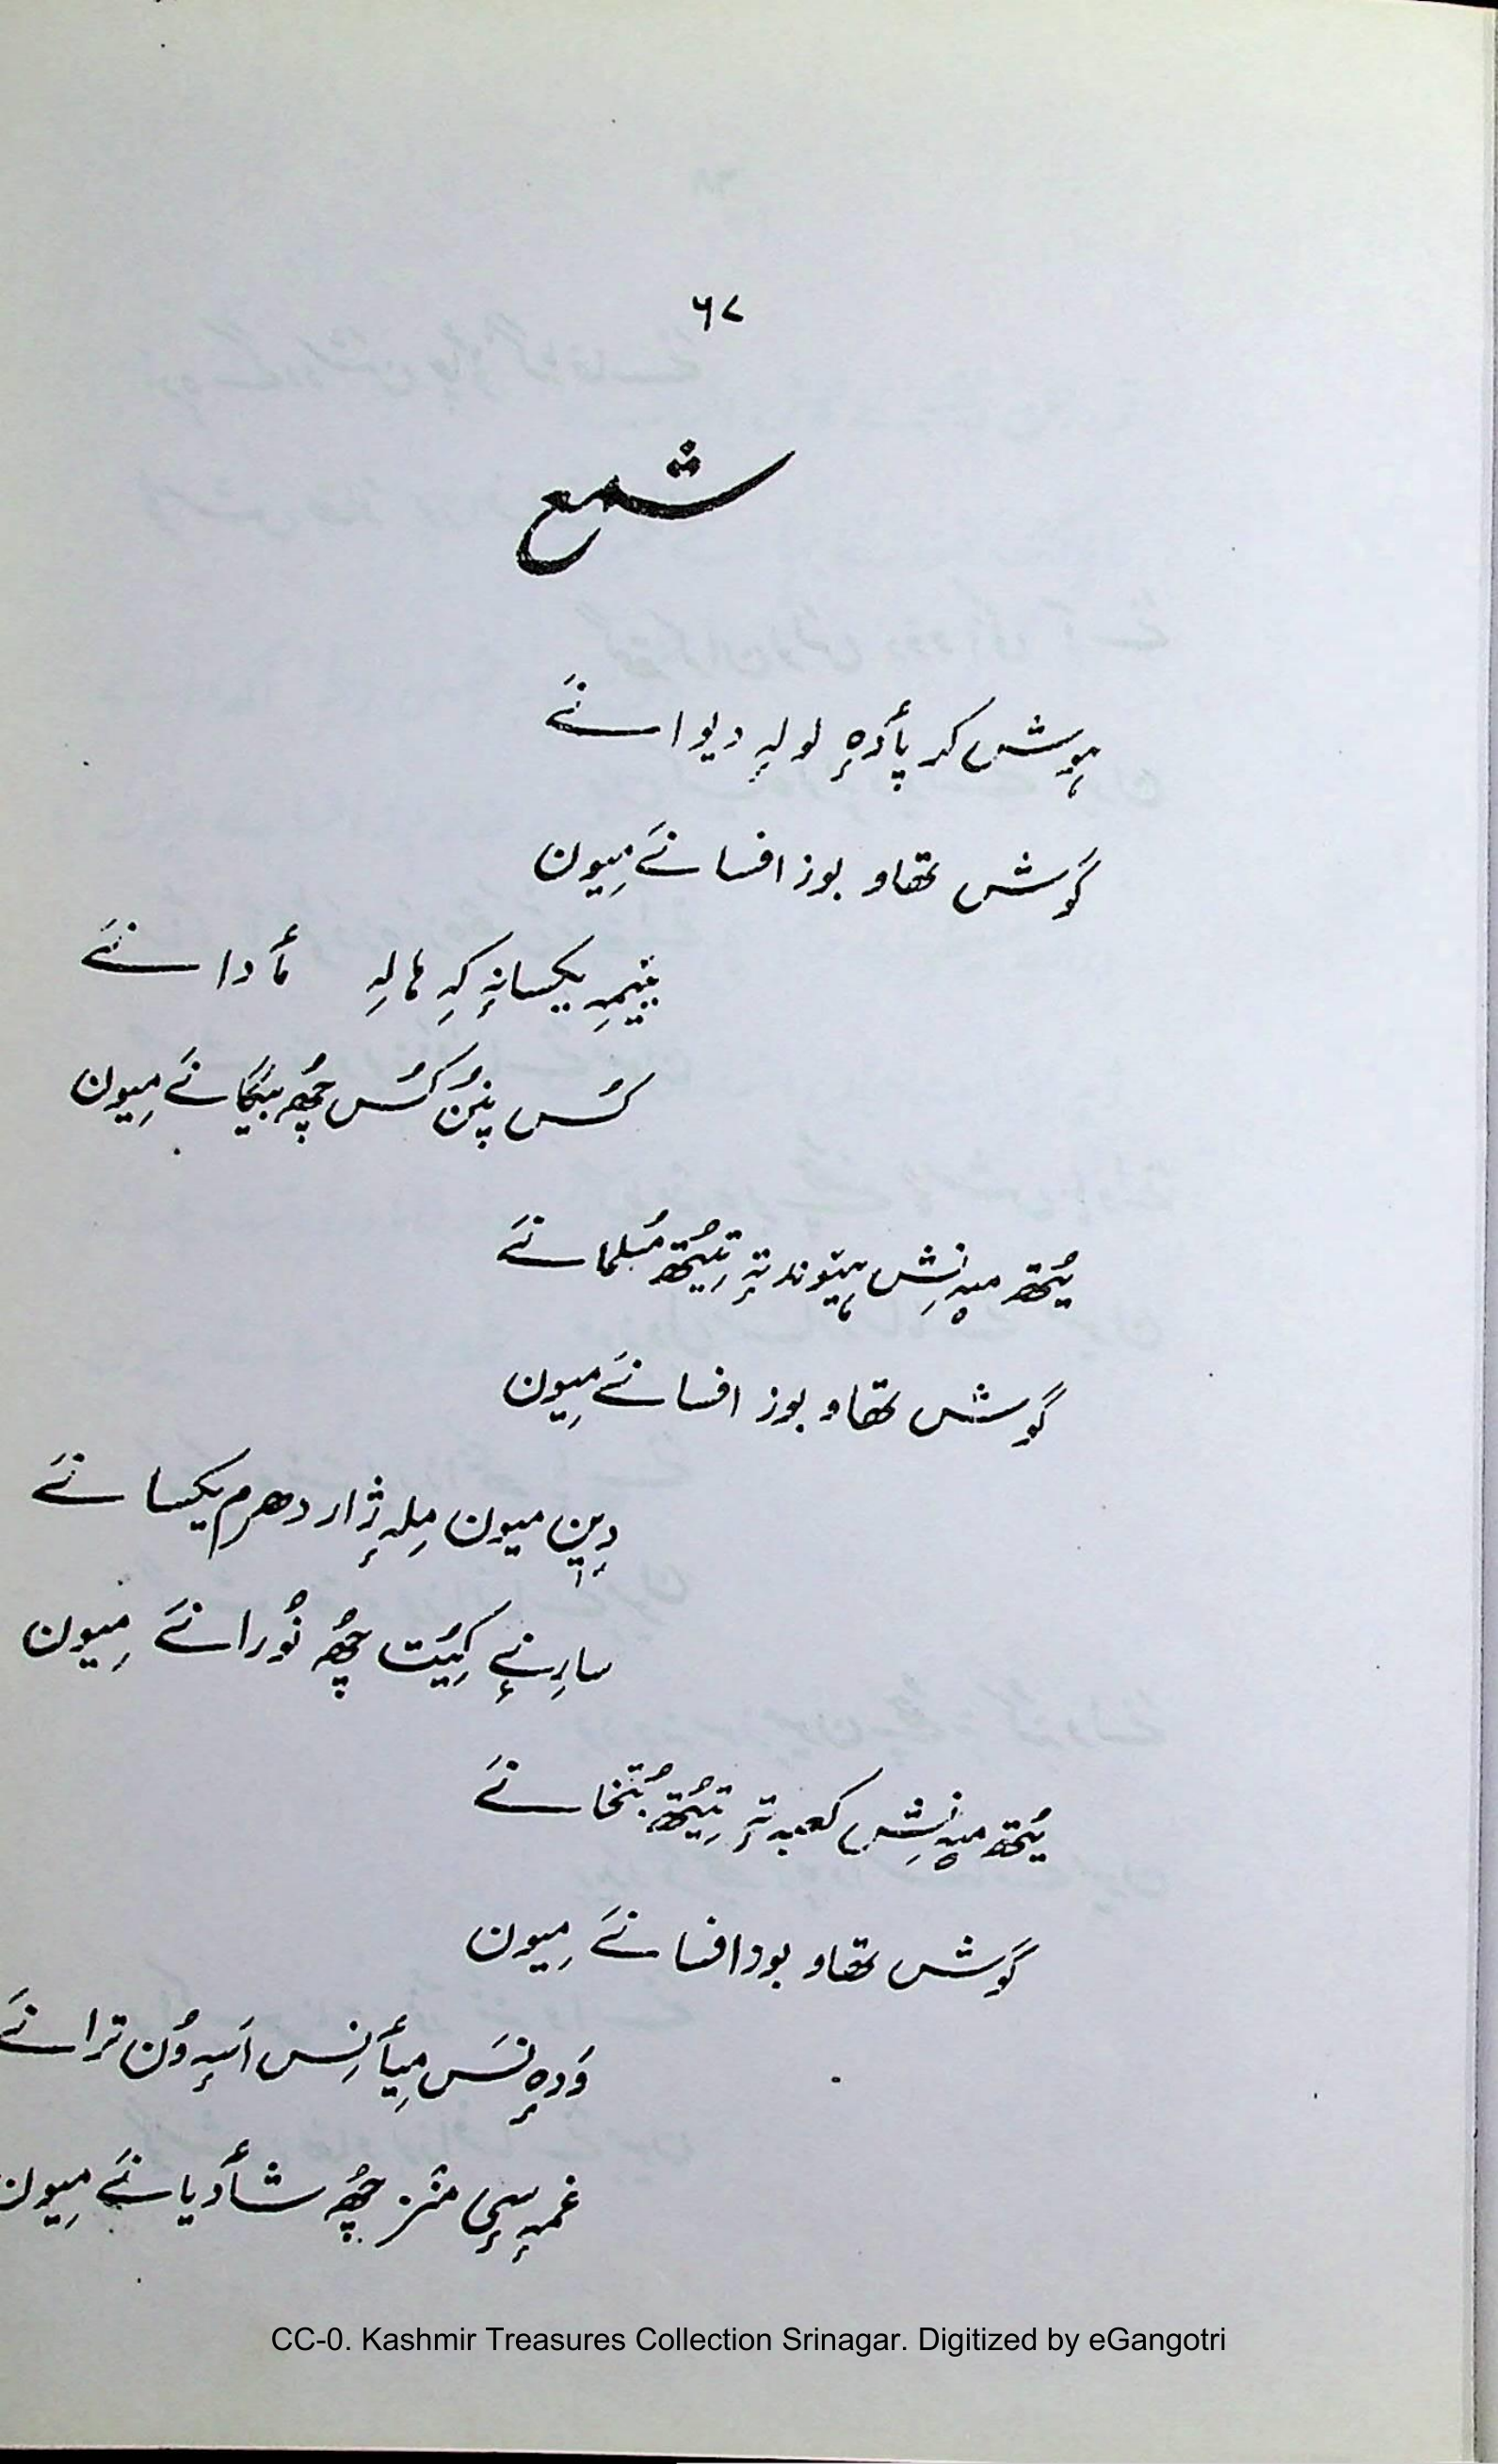 ۶۷
شمع
ہوش کر پأدٕہ لولہٕ دیوانَے
گوش تھاو بوز افسانَے میٖون
یکسانہٕ کہِ ہالہِ نأدانَے
کُس پنُن کُس چھُ بیگانَے میٖون
یُتھ میہٕ نِش ہیٚوند تہٕ تِیُتھ مُسلمانَے
گوش تھاو بوز افسانَے میٖون
دیٖن میون مِلہٕ ژار دھرم یکسانَے
سارِنٕے کِیُت چھُ نُورانَے میٖون
یُتھ میہٕ نِش کعبہ تہٕ تِیُتھ بُتخانَے
گوش تھاو بوز افسانَے میٖون
وَدٕہ نَس میأنِس اَسہٕ وُن ترانَے
غمہٕ سٕی منٛز چھُ شأدیانَے میٖون
CC-0. Kashmir Treasures Collection Srinagar. Digitized by eGangotri